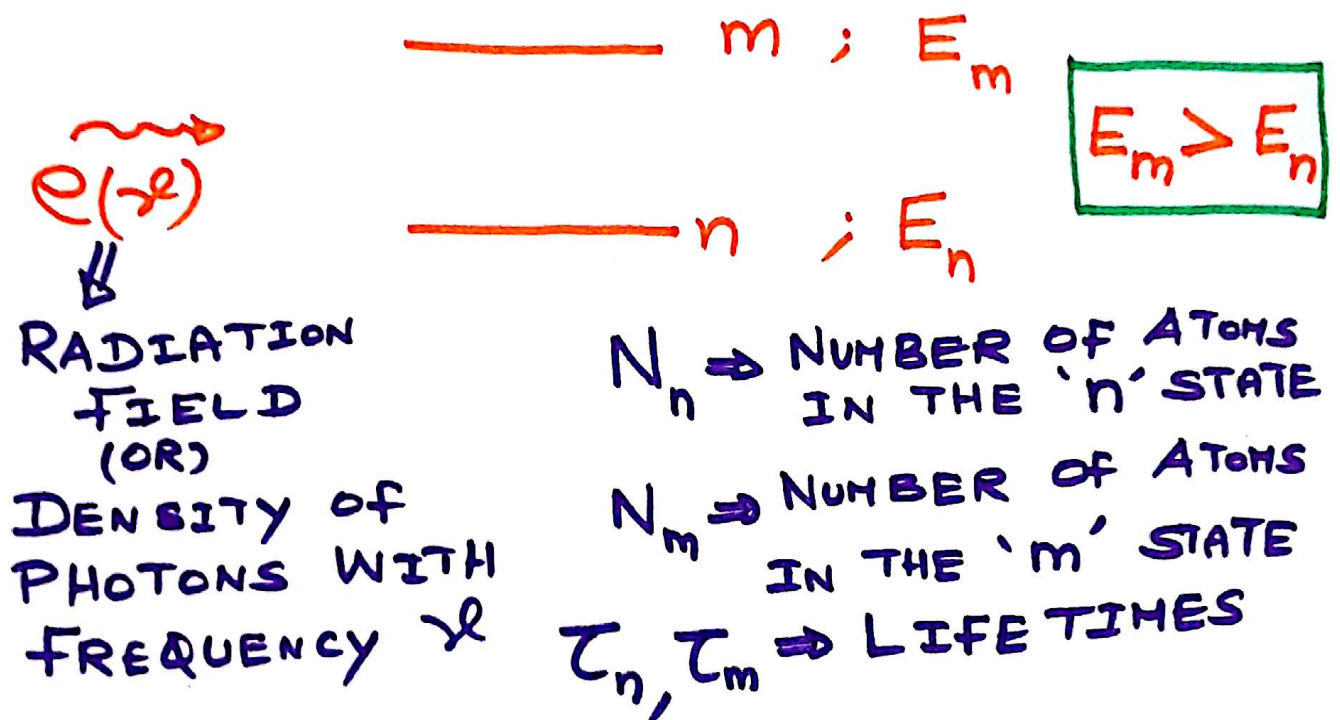 m ; Eₘ
Eₘ > Eₙ
ρ(ν)
n ; Eₙ
RADIATION
FIELD
(OR)
DENSITY OF
PHOTONS WITH
FREQUENCY ν
Nₙ ⇒ NUMBER OF ATOMS
IN THE 'n' STATE
Nₘ ⇒ NUMBER OF ATOMS
IN THE 'm' STATE
τₙ, τₘ ⇒ LIFE TIMES